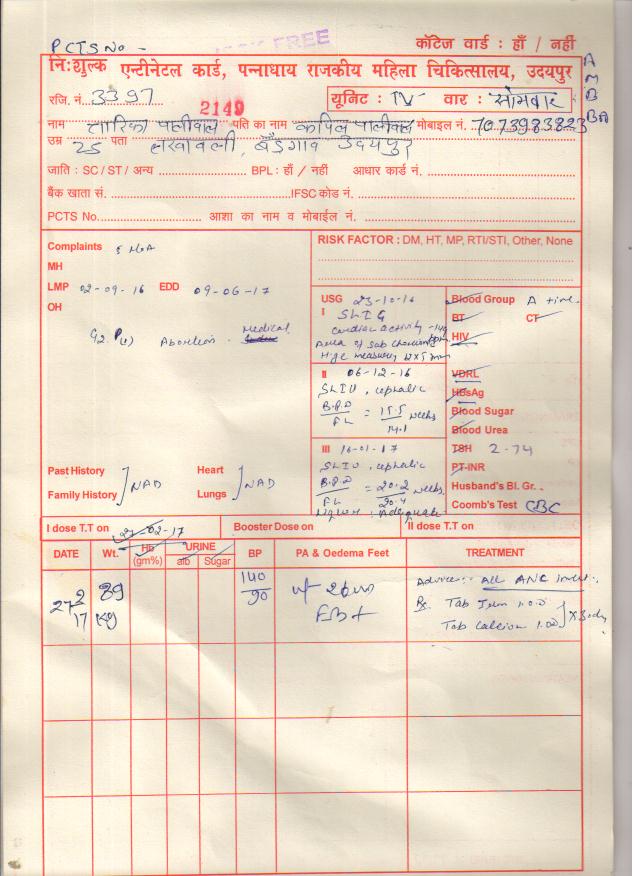 PCTS No -
FREE
कॉटेज वार्ड : हाँ / नहीं
निःशुल्क एन्टीनेटल कार्ड, पन्नाधाय राजकीय महिला चिकित्सालय, उदयपुर
AMBBA
रजि. नं. 3397
2149
यूनिट : IV वार : सोमवार
नाम तारिका पालीवाल पति का नाम कपिल पालीवाल मोबाईल नं. 7073983823
उम्र 25 पता लखावली, बैडगाव उदयपुर
जाति : SC / ST / अन्य BPL: हाँ / नहीं आधार कार्ड नं.
बैंक खाता सं. IFSC कोड नं.
PCTS No. आशा का नाम व मोबाईल नं.
Complaints 5 MOA
MH
LMP 02-09-16 EDD 09-06-17
OH
G2 P(1) Abortion - Medical
Past History
Family History NAD
Heart
Lungs NAD
RISK FACTOR : DM, HT, MP, RTI/STI, Other, None
USG 23-10-16
I SLIG
cardiac activity -
Area of sub chorionic
Hge measuring 12x5 mm
II 06-12-16
SLIU, cephalic
B.P.D = 15.5 weeks
FL 14.1
III 16-01-17
SLIU, cephalic
B.P.D = 20.2 weeks
FL 20.4
Liquor : Adequate
Blood Group A +ive.
BT CT
HIV
VDRL
HBsAg
Blood Sugar
Blood Urea
TSH 2-74
PT-INR
Husband's Bl. Gr.
Coomb's Test CBC
I dose T.T on 27-02-17 Booster Dose on II dose T.T on
DATE Wt. Hb (gm%) URINE alb Sugar BP PA & Oedema Feet TREATMENT
27/2/17 89 Kg 140/90
FB+
Advice:- All ANC invst.
Rx Tab Iron 1.0.0
Tab Calcium 1.0.0 x 30 day